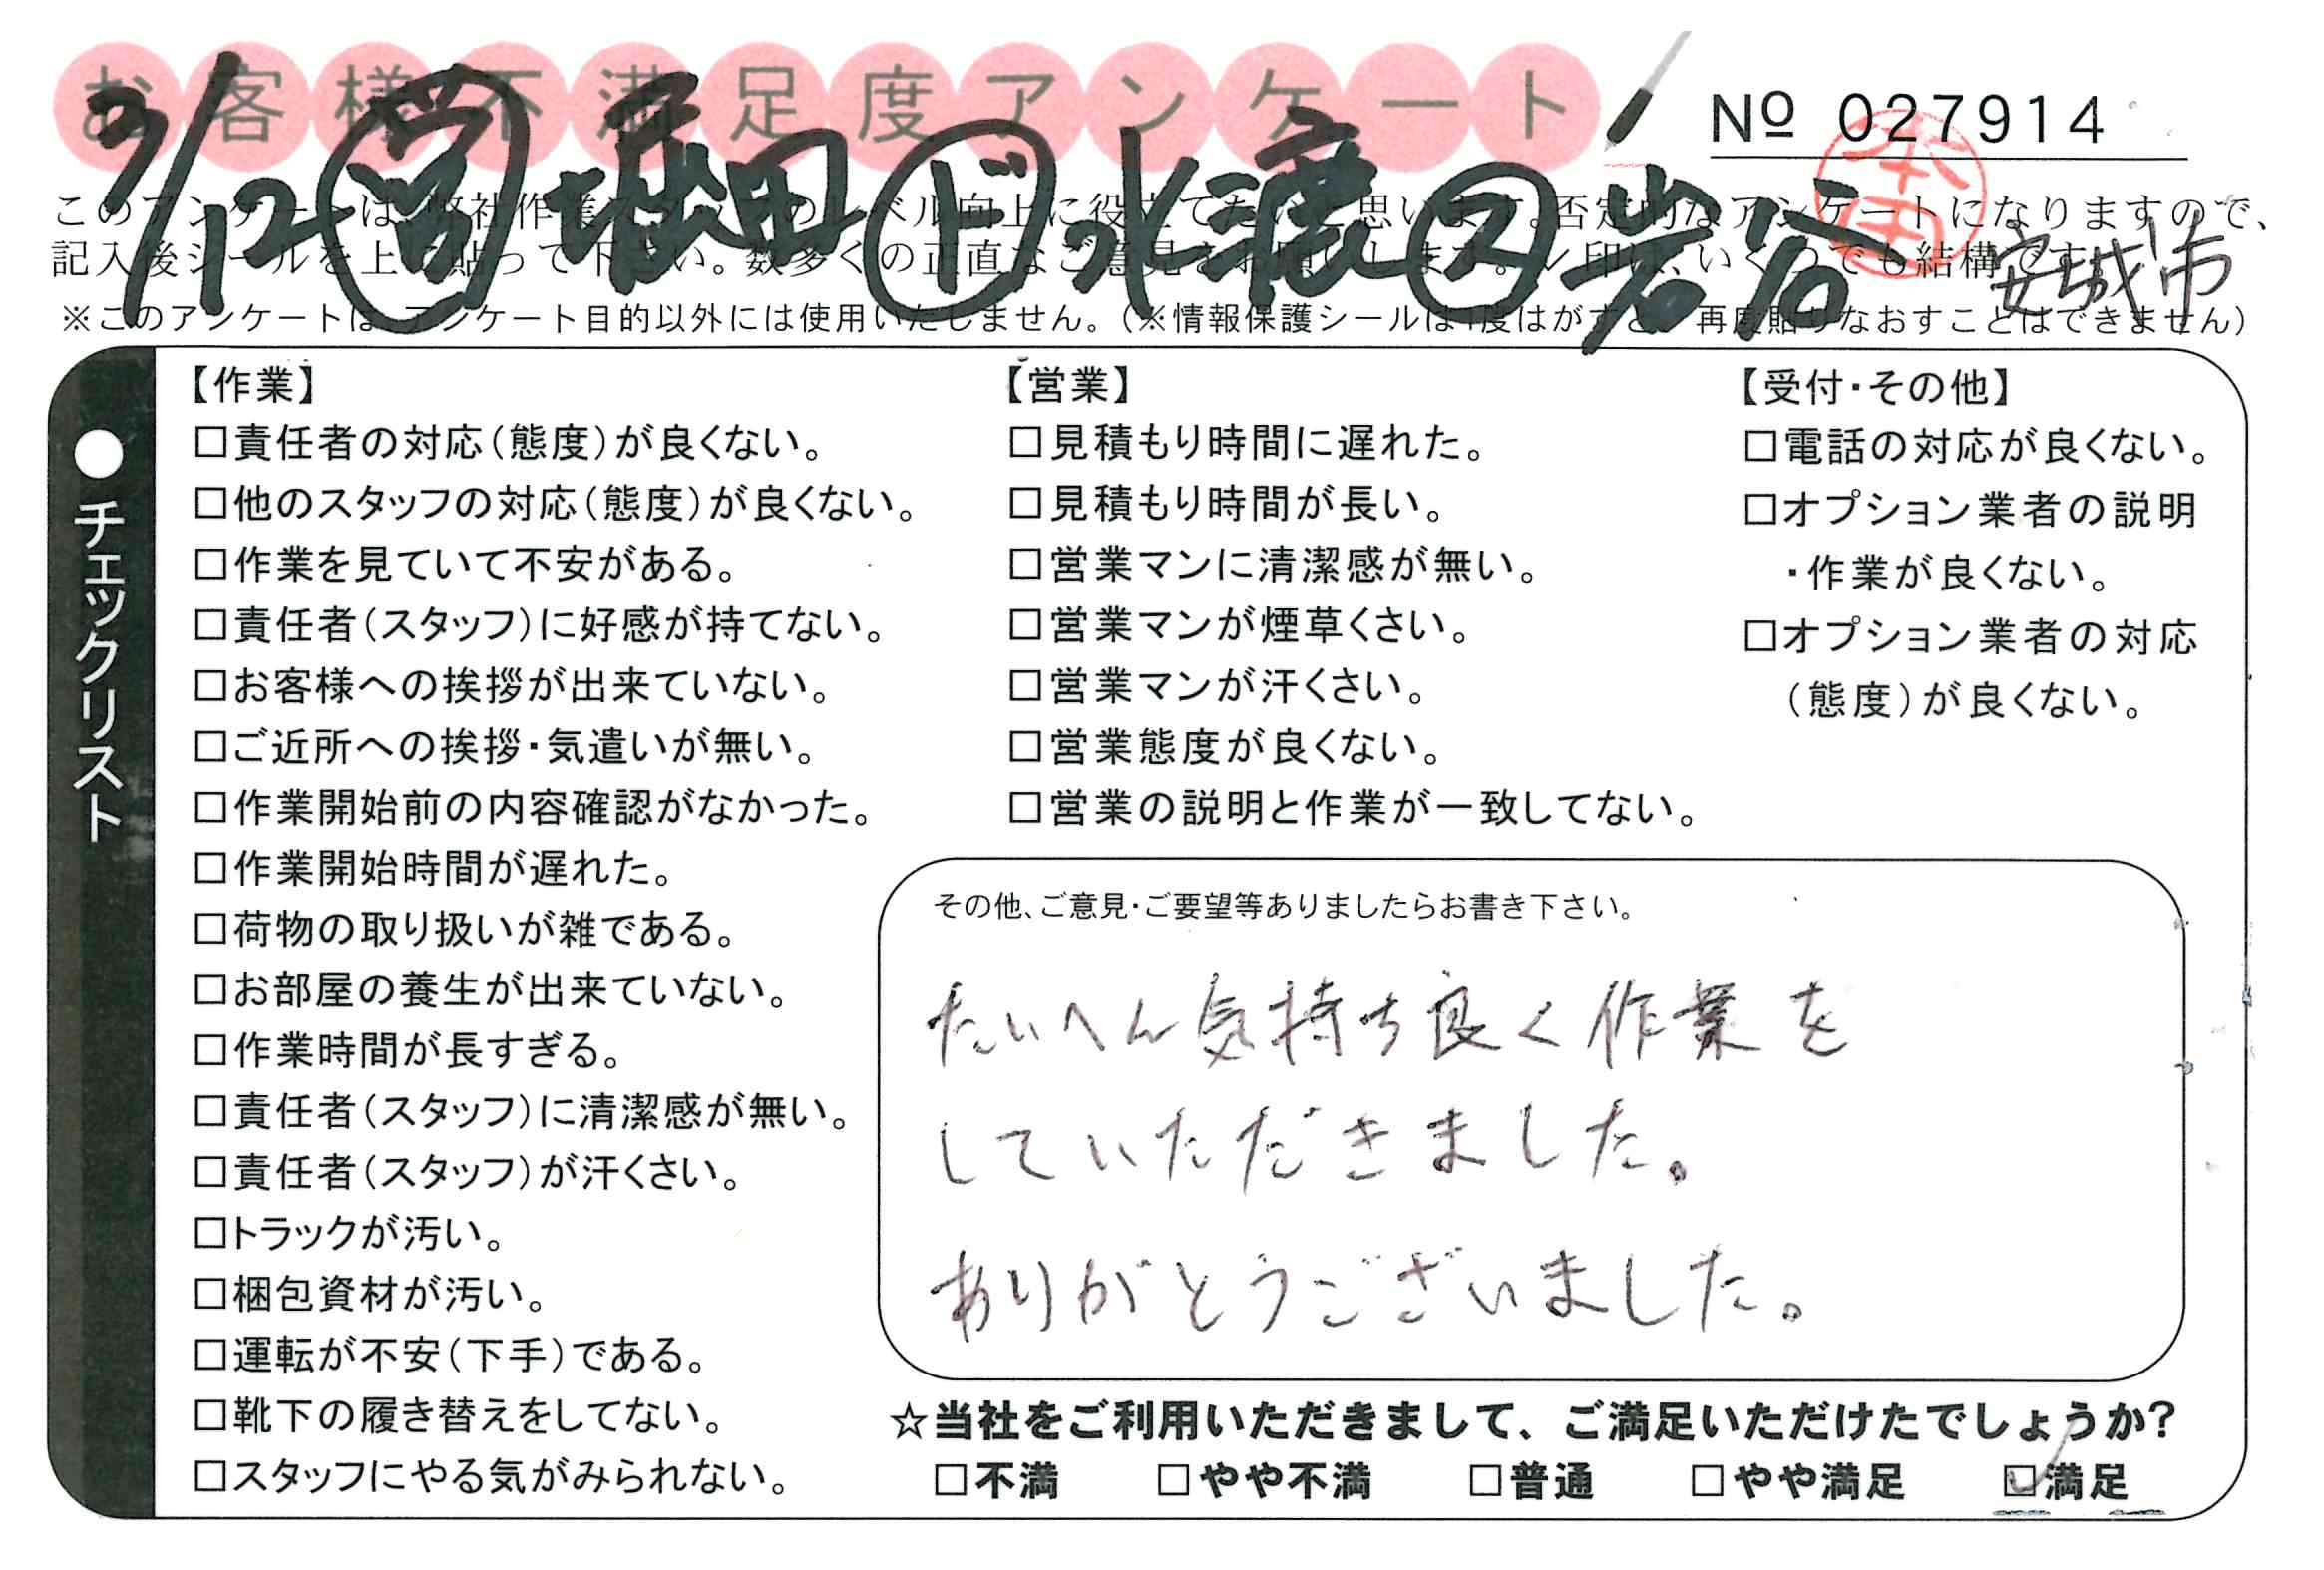 お客様不満足度アンケート
№ 027914
9/12 営 堀田 ド 水漉 ス 岩谷
本田
安城市
このアンケートは、弊社作業スタッフのレベル向上に役立てたいと思います。否定的なアンケートになりますので、
記入後シールを上に貼って下さい。数多くの正直なご意見をお願いします。レ印は、いくつでも結構です。
※このアンケートは、アンケート目的以外には使用いたしません。(※情報保護シールは1度はがすと、再度貼りなおすことはできません)
●チェックリスト
【作業】
□責任者の対応(態度)が良くない。
□他のスタッフの対応(態度)が良くない。
□作業を見ていて不安がある。
□責任者(スタッフ)に好感が持てない。
□お客様への挨拶が出来ていない。
□ご近所への挨拶・気遣いが無い。
□作業開始前の内容確認がなかった。
□作業開始時間が遅れた。
□荷物の取り扱いが雑である。
□お部屋の養生が出来ていない。
□作業時間が長すぎる。
□責任者(スタッフ)に清潔感が無い。
□責任者(スタッフ)が汗くさい。
□トラックが汚い。
□梱包資材が汚い。
□運転が不安(下手)である。
□靴下の履き替えをしてない。
□スタッフにやる気がみられない。
【営業】
□見積もり時間に遅れた。
□見積もり時間が長い。
□営業マンに清潔感が無い。
□営業マンが煙草くさい。
□営業マンが汗くさい。
□営業態度が良くない。
□営業の説明と作業が一致してない。
【受付・その他】
□電話の対応が良くない。
□オプション業者の説明
・作業が良くない。
□オプション業者の対応
(態度)が良くない。
その他、ご意見・ご要望等ありましたらお書き下さい。
たいへん気持ち良く作業を
していただきました。
ありがとうございました。
☆当社をご利用いただきまして、ご満足いただけたでしょうか?
□不満 □やや不満 □普通 □やや満足 ☑満足